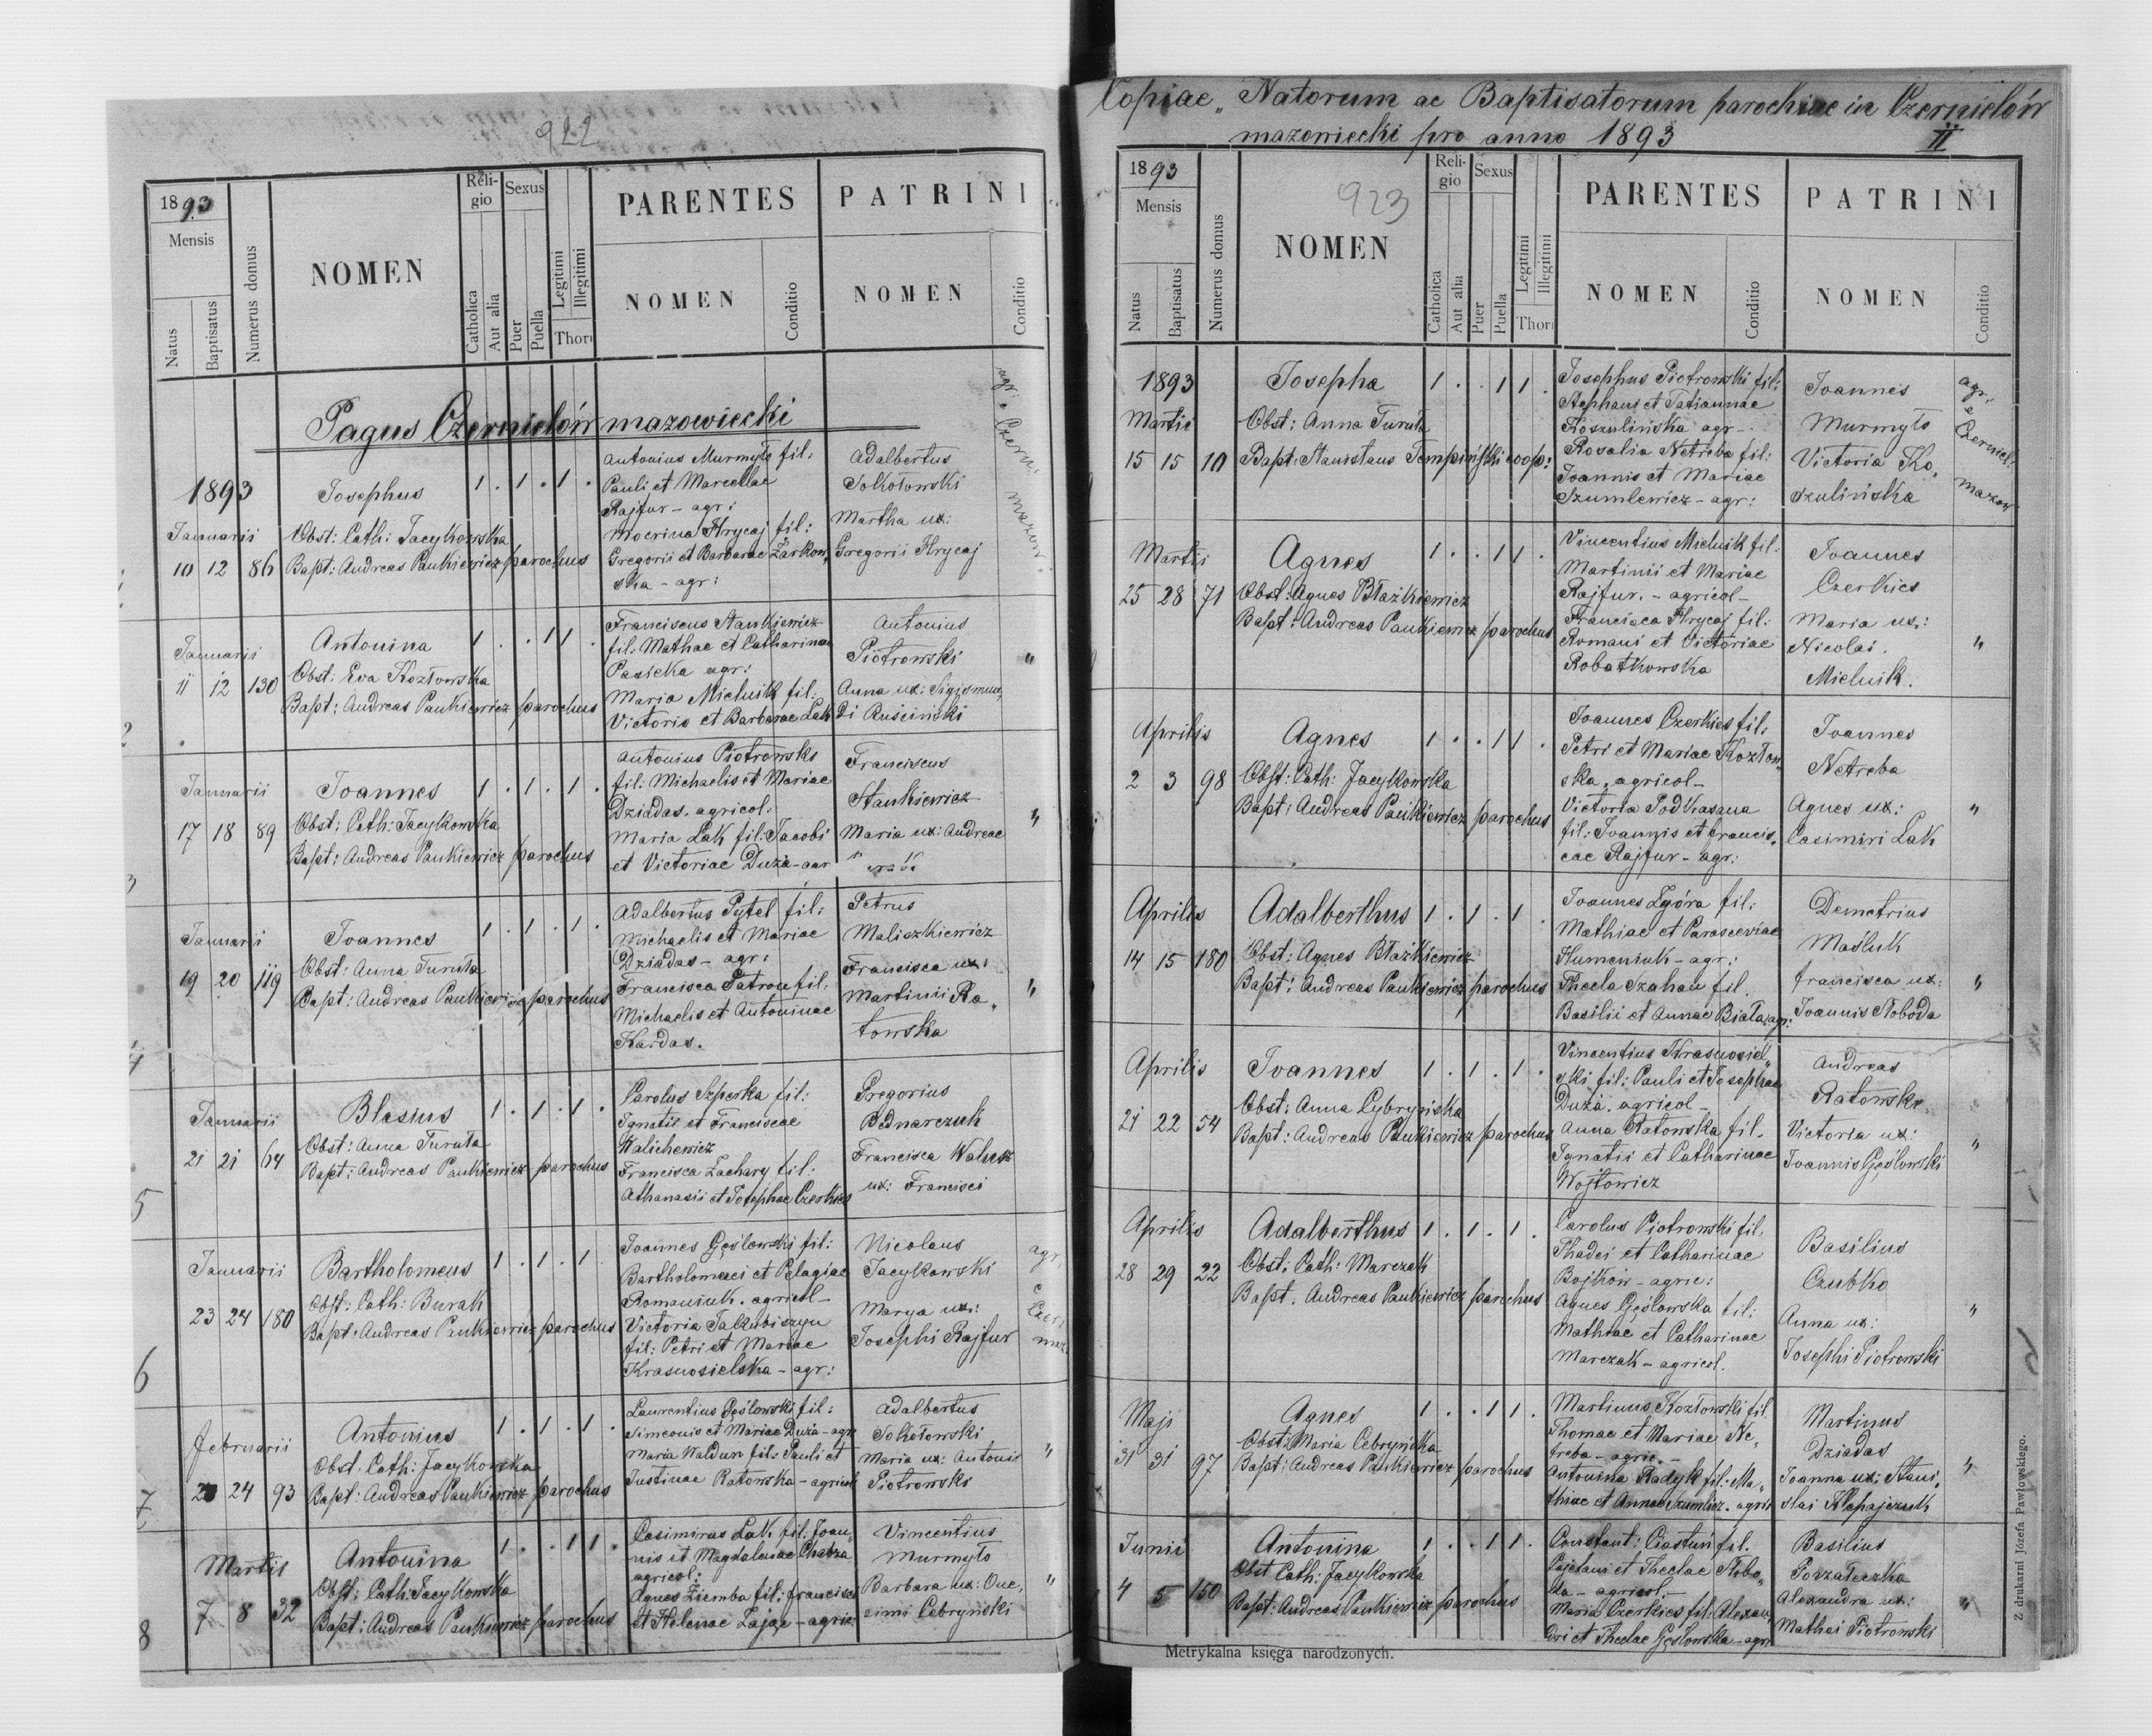 922
1893
Mensis
Natus
Baptisatus
Numerus domus
NOMEN
Religio
Catholica
Aut alia
Sexus
Puer
Puella
Legitimi
Illegitimi
Thori
PARENTES
NOMEN
Conditio
PATRINI
NOMEN
Conditio
Pagus Czernielów mazowiecki
agr: e Czern: mazow:
1893
Januarii
10 12 86
Josephus
1 . 1 . 1 .
Obst: Cath: Jacykowska
Bapt: Andreas Pankiewicz parochus
Antonius Murmyło fil:
Pauli et Marcellae
Rajfur - agr:
Mocrina Hrycaj fil:
Gregorii et Barbarae Żarkow,
ska - agr:
Adalbertus
Sokołowski
Martha ux:
Gregorii Hrycaj
Januarii
11 12 130
Antonina
1 . . 1 1 .
Obst: Eva Kozłowska
Bapt: Andreas Pankiewicz parochus
Franciscus Stankiewicz
fil: Mathae et Catharinae
Pasieka agr:
Maria Mielnik fil:
Victoris et Barbarae Lak
Antonius
Piotrowski
Anna ux: Sigismun,
di Ruściński
"
Januarii
17 18 89
Joannes
1 . 1 . 1 .
Obst: Cath: Jacykowska
Bapt: Andreas Pankiewicz parochus
Antonius Piotrowski
fil: Michaelis et Mariae
Dziadas. agricol:
Maria Lak fil: Jacobi
et Victoriae Duża - agr
Franciscus
Stankiewicz
Maria ux: Andreae
"
Januarii
19 20 119
Joannes
1 . 1 . 1 .
Obst: Anna Turuta
Bapt: Andreas Pankiewicz parochus
Adalbertus Pytel fil:
Michaelis et Mariae
Dziadas - agr:
Francisca Patron fil:
Michaelis et Antoninae
Kardas.
Petrus
Maliszkiewicz
Francisca ux:
Martinii Ra,
towska
"
Januarii
21 21 64
Blasius
1 . 1 . 1 .
Obst: Anna Turuta
Bapt: Andreas Pankiewicz parochus
Carolus Szperka fil:
Ignatii et Franciscae
Walichewicz
Francisca Zachary fil:
Athanasii et Josephae Czerkies
Gregorius
Bednarczuk
Francisca Walusz
ux: Francisci
Januarii
23 24 180
Bartholomeus
1 . 1 . 1
Obst: Cath: Burak
Bapt: Andreas Pankiewicz parochus
Joannes Gęślowski fil:
Bartholomaei et Pelagiae
Romaniuk. agricol-
Victoria Jakubiszyn
fil: Petri et Mariae
Krasnosielska - agr:
Nicolaus
Jacykowski
Marya ux:
Josephi Rajfur
agr.
e
Czer:
maz.
Februarii
24 93
Antonius
1 . 1 . 1 .
Obst. Cath: Jacykowska
Bapt: Andreas Pankiewicz parochus
Laurentius Gęślowski fil:
Simeonis et Mariae Duża - agr
Maria Waldun fil: Pauli et
Justinae Ratowska - agricol
Adalbertus
Sokołowski
Maria ux: Antonii
Piotrowski
"
Martii
7 8 32
Antonina
1 . . 1 1 .
Obst: Cath: Jacykowska
Bapt: Andreas Pankiewicz parochus
Casimirus Lak fil: Joan,
nis et Magdalenae Chabza
agricol:
Agnes Ziemba fil: Francisci
et Helenae Zając - agric
Vincentius
Murmyło
Barbara ux: One,
simi Cebryński
"
2
3
4
5
6
7
8
Copiae „ Natorum ac Baptisatorum parochiae in Czernielów
mazowiecki pro anno 1893
II
923
1893
Mensis
Natus
Baptisatus
Numerus domus
NOMEN
Religio
Catholica
Aut alia
Sexus
Puer
Puella
Legitimi
Illegitimi
Thori
PARENTES
NOMEN
Conditio
PATRINI
NOMEN
Conditio
1893
Martii
15 15 10
Josepha
1 . . 1 1 .
Obst: Anna Turuta
Bapt: Stanislaus Tempiński coop:
Josephus Piotrowski fil:
Stephani et Tatiannae
Koszulińska agr-
Rosalia Netreba fil:
Joannis et Mariae
Szumlewicz - agr:
Joannes
Murmyło
Victoria Ko,
szulińska
agr.
e
Czerniel:
mazow
Martii
25 28 71
Agnes
1 . . 1 1 .
Obst: Agnes Błażkiewicz
Bapt: Andreas Pankiewicz parochus
Vincentius Mielnik fil:
Martinii et Mariae
Rajfur. - agricol-
Francisca Hrycaj fil:
Romani et Victoriae
Robatkowska
Joannes
Czerkies
Maria ux:
Nicolai.
Mielnik.
"
Aprilis
2 3 98
Agnes
1 . . 1 1 .
Obst: Cath: Jacykowska
Bapt: Andreas Pankiewicz parochus
Joannes Czerkies fil:
Petri et Mariae Kozłow,
ska. agricol-
Victoria Podkasana
fil: Joannis et Francis,
cae Rajfur - agr:
Joannes
Netreba
Agnes ux:
Casimiri Lak
"
Aprilis
14 15 180
Adalberthus
1 . 1 . 1 .
Obst: Agnes Błażkiewicz
Bapt: Andreas Pankiewicz parochus
Joannes Zgóra fil:
Mathiae et Parasceviae
Humeniuk - agr:
Thecla Szahan fil.
Basilii et Annae Biała, agr:
Demetrius
Maśluk
Francisca ux:
Joannis Słoboda
"
Aprilis
21 22 54
Joannes
1 . 1 . 1 .
Obst: Anna Cybryńska
Bapt: Andreas Pankiewicz parochus
Vincentius Krasnosiel,
ski fil: Pauli et Josephae
Duża. agricol-
Anna Ratowska fil.
Ignatii et Catharinae
Wojtowicz
Andreas
Ratowski
Victoria ux:
Joannis Gęślowski
"
Aprilis
28 29 22
Adalberthus
1 . 1 . 1 .
Obst: Cath: Marczak
Bapt. Andreas Pankiewicz parochus
Carolus Piotrowski fil.
Thadei et Catharinae
Bojków - agric:
Agnes Gęślowska fil:
Mathiae et Catharinae
Marczak - agricol.
Basilius
Czubko
Anna ux:
Josephi Piotrowski
"
Maji
31 31 97
Agnes
1 . . 1 1 .
Obst: Maria Cebryńska
Bapt: Andreas Pankiewicz parochus
Martinus Kozłowski fil.
Thomae et Mariae Ne,
treba - agric. -
Antonina Radyk fil: Ma,
thiae et Annae Szumlicz. agric
Martinus
Dziadas
Joanna ux: Stani,
slai Klepajczuk
"
Junii
4 5 150
Antonina
1 . . 1 1 .
Obst Cath: Jacykowska
Bapt: Andreas Pankiewicz parochus
Constant: Ciastuń fil.
Cajetani et Theclae Słobo,
da - agricol. -
Maria Czerkies fil: Alexan,
dri et Theclae Gęślowska - agr.
Basilius
Alexandra ux:
Mathei Piotrowski
"
Metrykalna księga narodzonych.
Z drukarni Józefa Pawłowskiego.